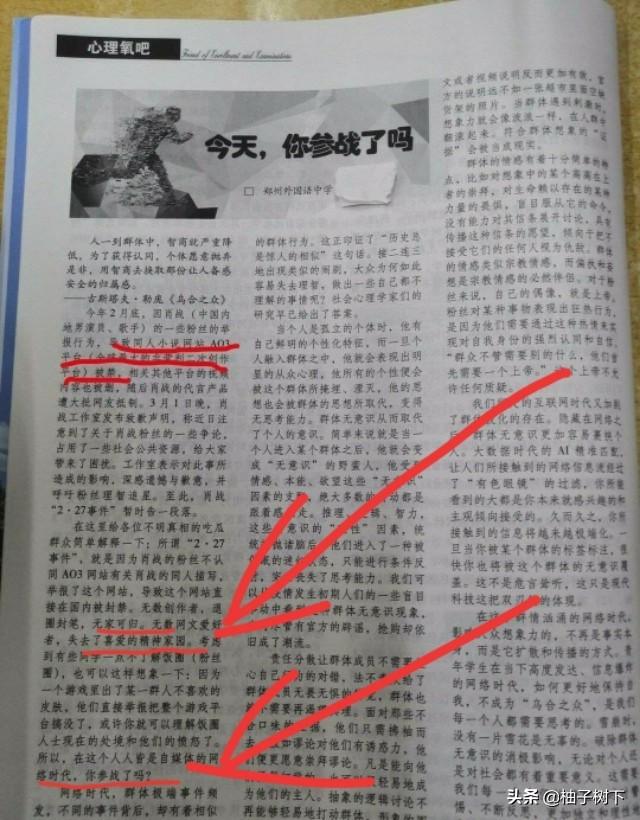 心理氧吧
Trend of Enrollment and Examinations
今天，你参战了吗
□ 郑州外国语中学
人一到群体中，智商就严重降
低，为了获得认同，个体愿意抛弃
是非，用智商去换取那份让人备感
安全的归属感。
——古斯塔夫·勒庞《乌合之众》
今年2月底，因肖战（中国内
地男演员、歌手）的一些粉丝的举
报行为，导致同人小说网站 AO3
平台（全球最大的非营利二次创作
平台）被禁，相关其他平台的
内容也被删，随后肖战的代言产品
遭大批网友抵制。3月1日晚，肖
战工作室发布致歉声明，称近日注
意到了关于肖战粉丝的一些争论，
占用了一些社会公共资源，给大家
带来了困扰。工作室表示对此事所
造成的影响，深感遗憾与歉意，并
呼吁粉丝理智追星。至此，肖战
“2·27事件”暂时告一段落。
在这里给各位不明真相的吃瓜
群众简单解释一下：所谓“2·27
事件”，就是因为肖战的粉丝不认
同AO3网站有关肖战的同人描写，
举报了这个网站，导致这个网站直
接在国内被封禁。无数创作者，退
圈封笔，无家可归。无数网文爱好
者，失去了喜爱的精神家园。考虑
到有些同学一点不了解饭圈（粉丝
圈），也可以这样想象一下：因为
一个游戏里出了某一群人不喜欢的
皮肤，他们直接举报把整个游戏平
台搞没了，或许你就可以理解饭圈
人士现在的处境和他们的愤怒了。
所以，在这个人人皆是自媒体的网
络时代，你参战了吗？
网络时代，群体极端事件频
发，不同的事件背后，却有着相似
的群体行为。这正印证了“历史总
是惊人的相似”这句话。接二连三
地出现类似的闹剧，大众为何如此
容易失去理智，做出一些自己都不
理解的事情呢？社会心理学家们的
研究早已给出了答案。
当个人是孤立的个体时，他有
自己鲜明的个性化特征，而一旦个
人融入群体之中，他就会表现出明
显的从众心理，他所有的个性便会
被这个群体所掩埋、湮灭，他的思
想也会被群体的思想所取代，变得
无思考能力。群体无意识从而取代
了个人的意识。简单来说就是当一
个人进入某个群体之后，他就会变
成“无意识”的野蛮人，他受
情感、本能、欲望这些“无意识”
因素的支配，绝大多数的行动都是
跟着感觉走。推理、逻辑、智力，
这些
因素，
统统抛诸脑后，他们进入了一种被
状态，只能进行条件反
丧失了思考能力。我们可
以从疫情发生初期人们的一些盲目
群体无意识现象，
尽管有官方的辟谣，抢购却依
旧成了潮流。
责任分散让群体成员不需要
心自己行为的对错，法不责众给了
群体成员无畏无惧的
，群体也
需要再遵守
。面对那些不
合口味的
，他们只需拂袖而
谬论对他们有诱惑力，他
们便更愿意崇拜谬论。凡是能向他
轻易地成
为他们的主人。抽象的逻辑讨论不
再能够轻易地打动群体，形象的图
文或者视频说明反而更加有效，官
方的说明远不如一张超市里面空缺
货架的照片。当群体遇到刺激时，
想象力就会像波浪一样，在人群中
翻滚起来。符合群体想象的“证
据”会被当成现实。
群体的情感有着十分简单的特
点，比如对想象中的某个高高在上
者的崇拜，对生命赖以存在的某种
力量的畏惧，盲目服从它的命令，
没有能力对其信条展开讨论，具有
传播这种信条的愿望，倾向于把不
接受它们的任何人视为仇敌。群体
的情感类似宗教情感，而偏执和妄
想是宗教情感的必然伴侣。对于粉
丝来说，自己的偶像，就是上帝。
粉丝对某种事物表现出狂热行为，
是因为他们需要通过这种热情来实
现对自我身份的强烈认同和自信，
“群众不管需要别的什么，他们首
先需要一个上帝。”这个上帝不允
许任何质疑。
我们
的互联网时代又加剧
了群体
的存在。隐藏在网络之
后，群体无意识更加容易裹挟个
人。大数据时代的 AI 精准匹配，
让人们所接触到的网络信息流经过
了“有色眼镜”的过滤，你所能
看到的大都是你本来就感兴趣的和
主观倾向接受的。久而久之，你所
接触到的信息将越来越极端化。一
旦当你被某个群体的标签标注，很
快你也将被这个群体的无意识覆
盖。这不是危言耸听，这只是现代
科技这把双刃剑的体现。
在这个群情汹涌的网络时代，
影响大众想象力的，不再是事实本
身，而是它扩散和传播的方式。青
年学生在当下高度发达、信息爆炸
的网络时代，如何更好地保持自
我，不成为“乌合之众”，是我们
每一个人都需要思考的。雪崩时，
没有一片雪花是无辜的。破除群体
无意识的消极影响，无论对个人还
是对社会都有着重要意义。这需要
我们每一
头条 @柚子树下